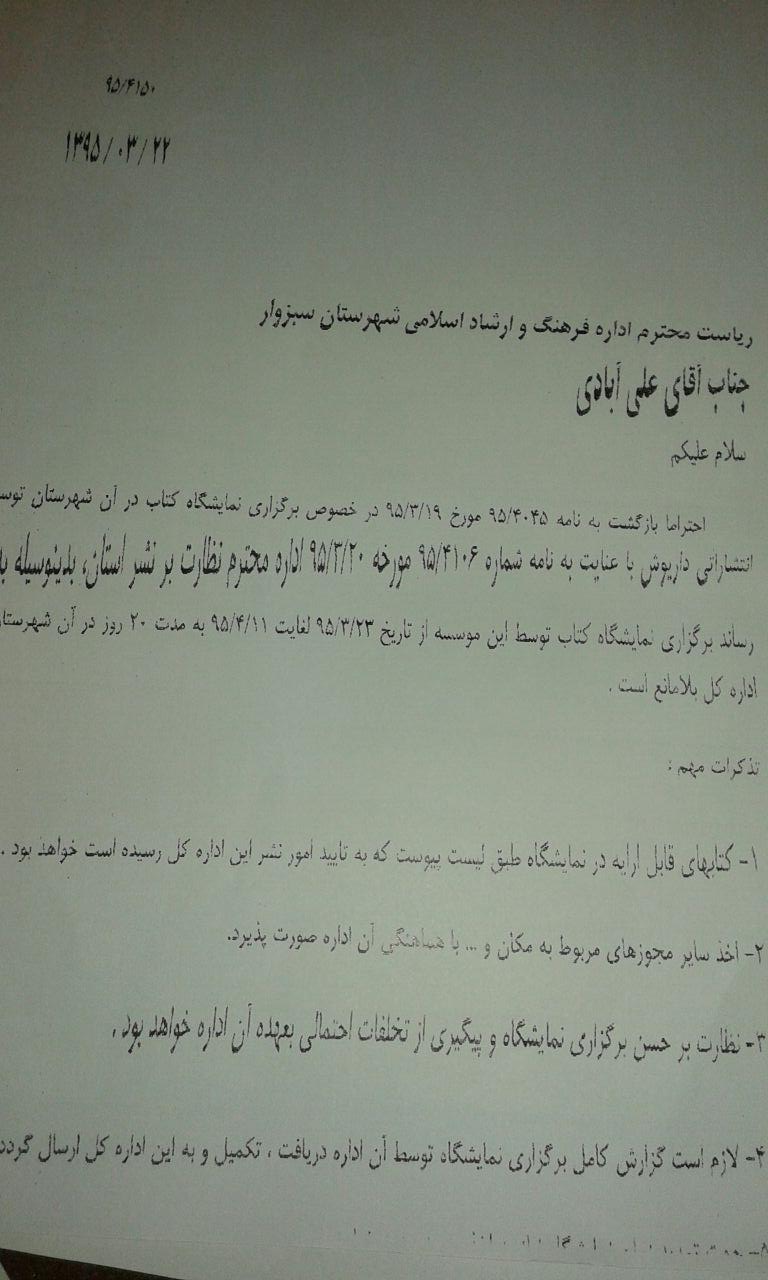 ۹۵/۴۱۵۰
۱۳۹۵/۰۳/۲۲
ریاست محترم اداره فرهنگ و ارشاد اسلامی شهرستان سبزوار
جناب آقای علی آبادی
سلام علیکم
احتراما بازگشت به نامه ۹۵/۴۰۴۵ مورخ ۹۵/۳/۱۹ در خصوص برگزاری نمایشگاه کتاب در آن شهرستان توس
انتشاراتی داریوش با عنایت به نامه شماره ۹۵/۴۱۰۶ مورخه ۹۵/۳/۲۰ اداره محترم نظارت بر نشر استان، بدینوسیله
رساند برگزاری نمایشگاه کتاب توسط این موسسه از تاریخ ۹۵/۳/۲۳ لغایت ۹۵/۴/۱۱ به مدت ۲۰ روز در آن شهرستا
اداره کل بلامانع است .
تذکرات مهم :
۱- کتابهای قابل ارایه در نمایشگاه طبق لیست پیوست که به تایید امور نشر این اداره کل رسیده است خواهد بود .
۲- اخذ سایر مجوزهای مربوط به مکان و ... با هماهنگی آن اداره صورت پذیرد.
۳- نظارت بر حسن برگزاری نمایشگاه و پیگیری از تخلفات احتمالی بعهده آن اداره خواهد بود .
۴- لازم است گزارش کامل برگزاری نمایشگاه توسط آن اداره دریافت ، تکمیل و به این اداره کل ارسال گردد